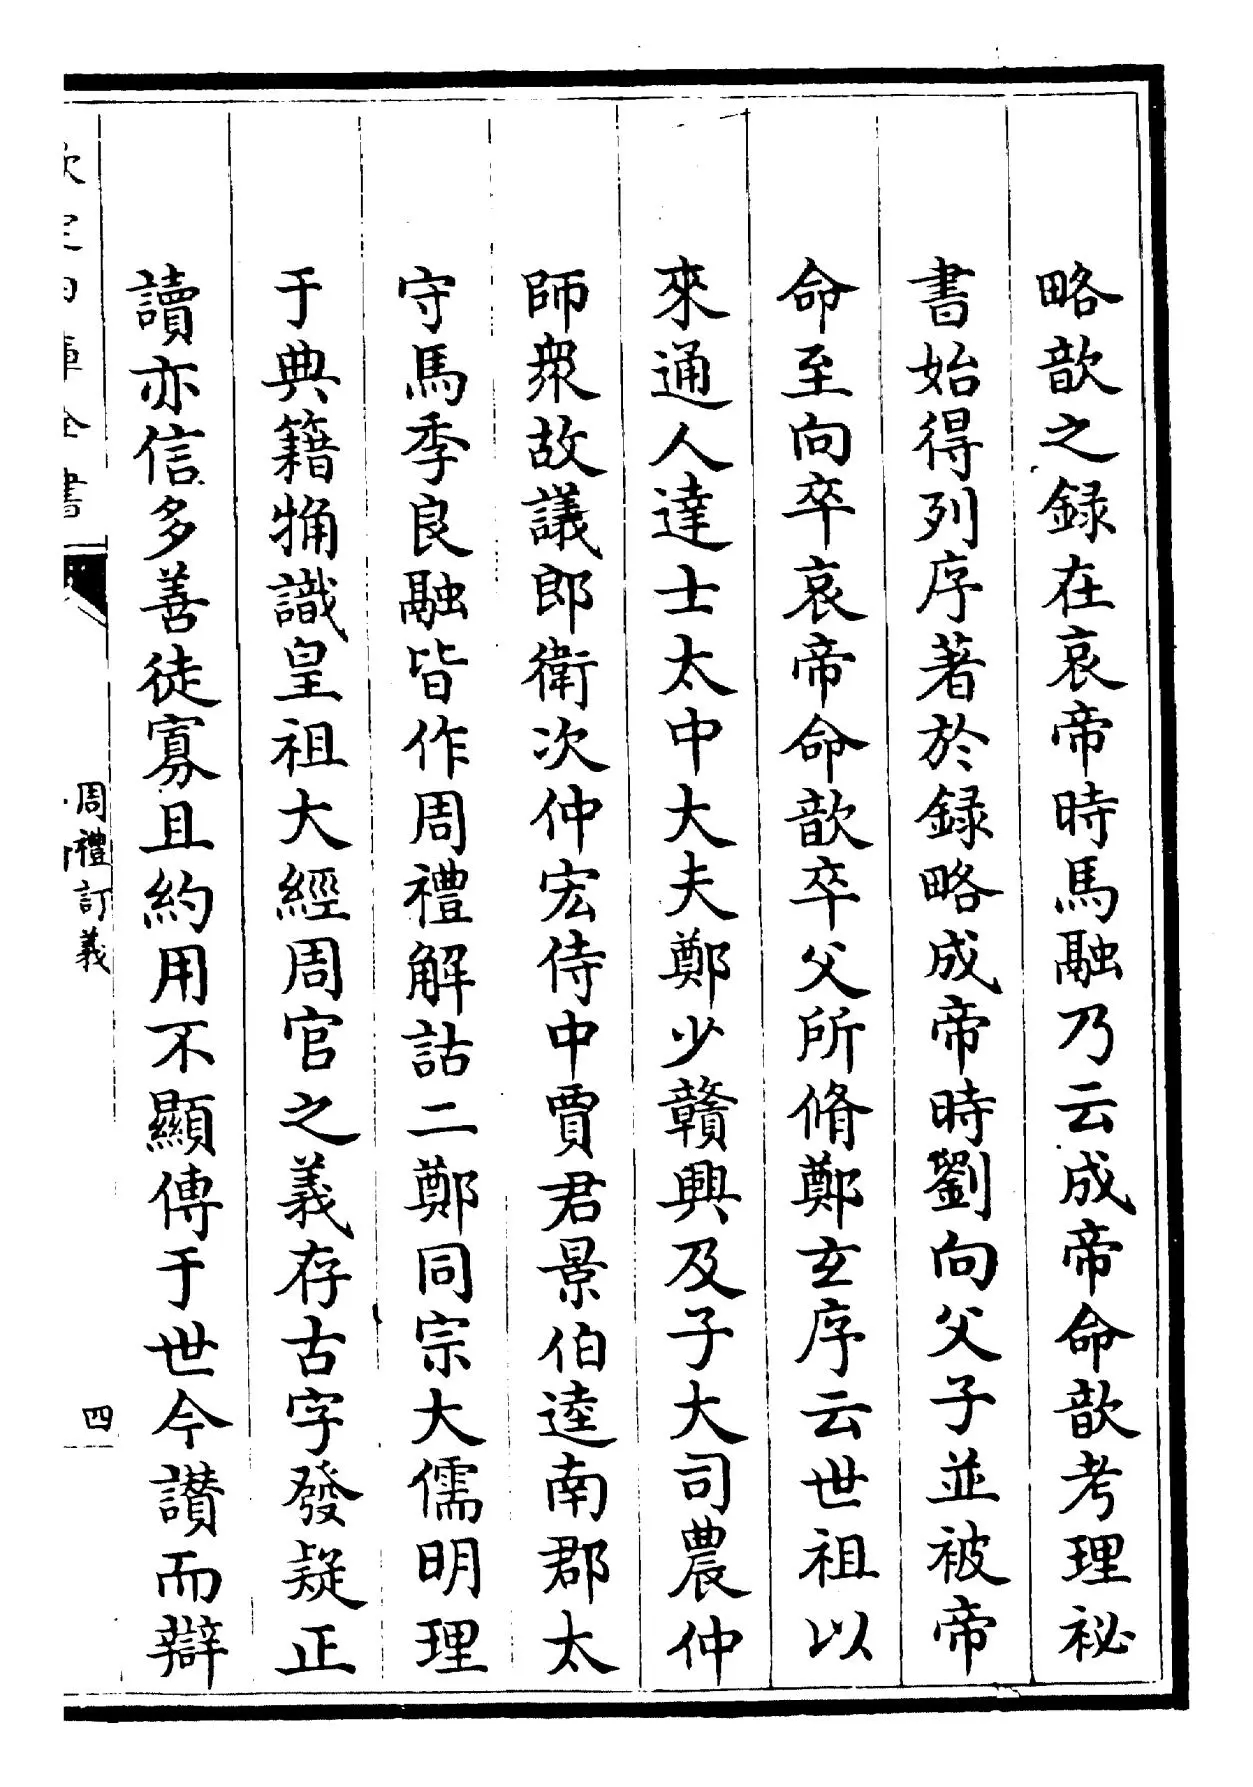 略歆之録在哀帝時馬融乃云成帝命歆考理祕
書始得列序著於録略成帝時劉向父子並被帝
命至向卒哀帝命歆卒父所脩鄭𤣥序云世祖以
來通人達士太中大夫鄭少贛興及子大司農仲
師衆故議郎衛次仲宏侍中賈君景伯逵南郡太
守馬季良融皆作周禮解詁二鄭同宗大儒明理
于典籍觕識皇祖大經周官之義存古字發疑正
讀亦信多善徒寡且約用不顯傳于世今讃而辯
欽定四庫全書
周禮訂義
四